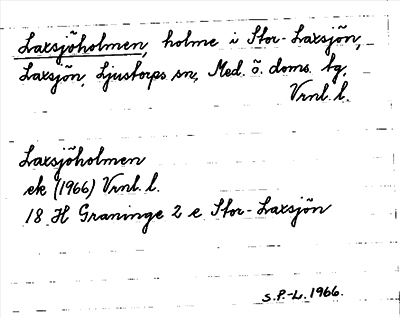 Laxsjöholmen, holme i Stor-Laxsjön,
Laxsjön, Ljustorps sn, Med. ö. doms. tg,
Vrnl. l.
Laxsjöholmen
ek (1966) Vrnl. l.
18 H Graninge 2 e Stor-Laxsjön
S.P.-L. 1966.